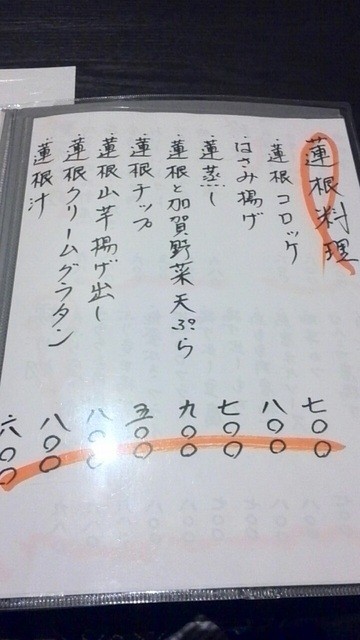 蓮根料理
・蓮根コロッケ 七〇〇
・はさみ揚げ 八〇〇
・蓮蒸し 七〇〇
・蓮根と加賀野菜天ぷら 九〇〇
・蓮根チップ 五〇〇
・蓮根山芋揚げ出し 八〇〇
・蓮根クリームグラタン 八〇〇
・蓮根汁 六〇〇